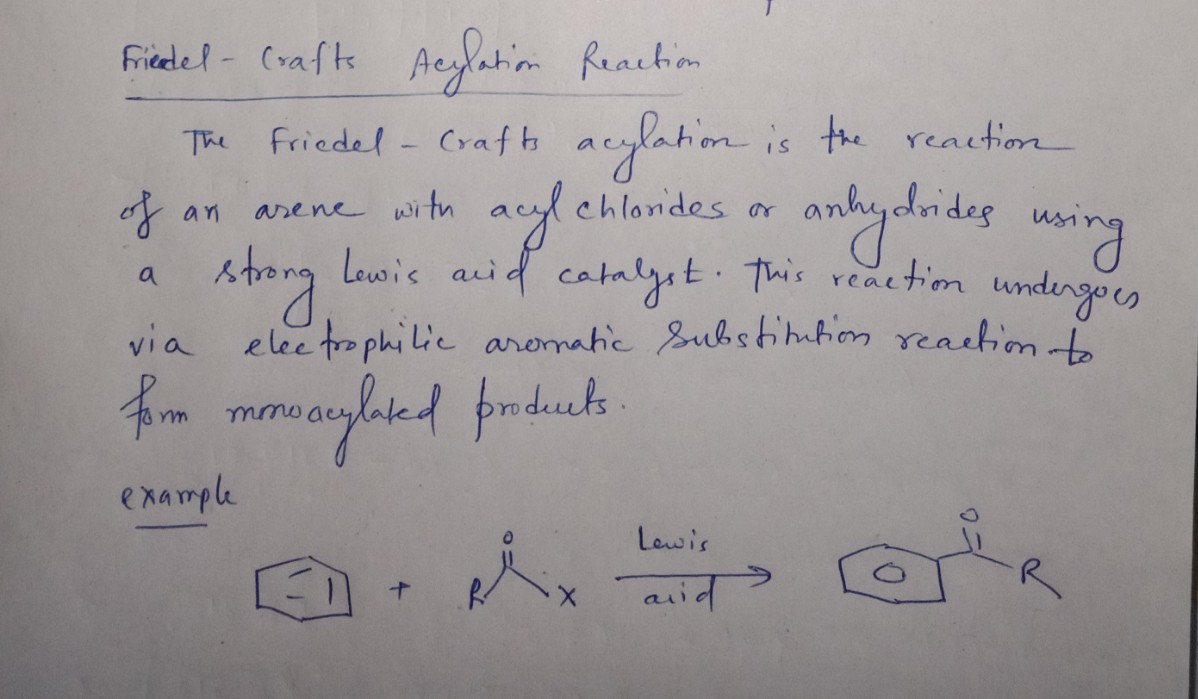 Friedel - Crafts Acylation Reaction
The Friedel - Crafts acylation is the reaction
of an arene with acyl chlorides or anhydrides using
a strong Lewis acid catalyst. This reaction undergoes
via electrophilic aromatic substitution reaction to
form monoacylated products.
example
O O
Lewis
+ R X R
acid